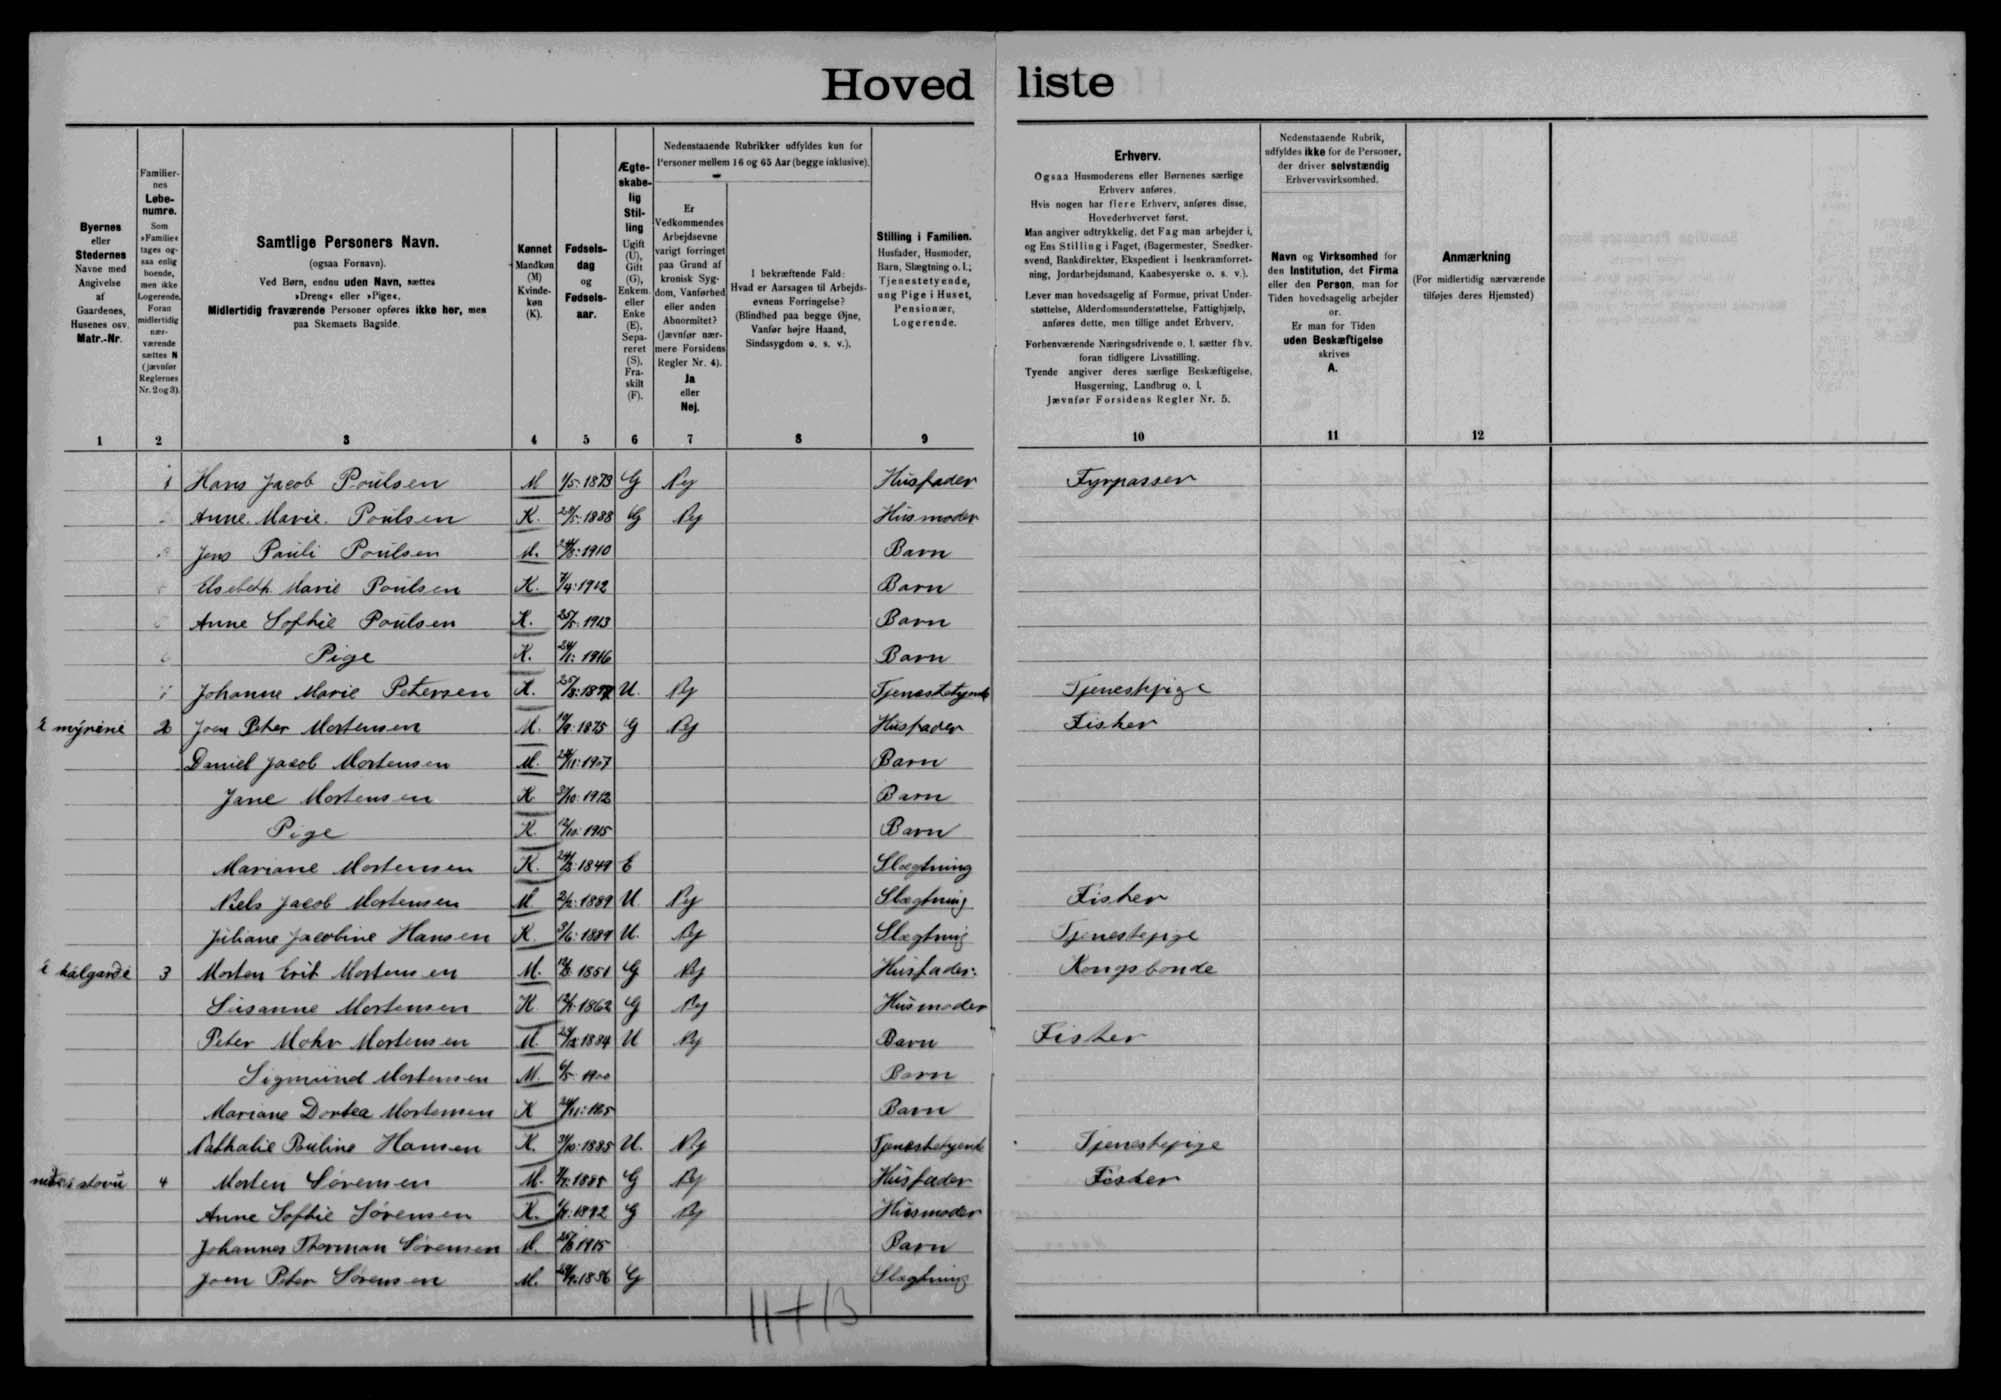 Hovedliste
Byernes eller Stedernes Navne med Angivelse af Gaardenes, Husenes osv. Matr.-Nr.
Familiernes Løbenumre. Som »Familie« tages ogsaa enlig boende, men ikke Logerende. Foran midlertidig nærværende sættes N (jævnfør Reglernes Nr. 2 og 3).
Samtlige Personers Navn. (ogsaa Fornavn). Ved Børn, endnu uden Navn, sættes »Dreng« eller »Pige«. Midlertidig fraværende Personer opføres ikke her, men paa Skemaets Bagside.
Kønnet Mandkøn (M) Kvindekøn (K).
Fødselsdag og Fødselsaar.
Ægteskabelig Stilling Ugift (U), Gift (G), Enkem. eller Enke (E), Separeret (S), Fraskilt (F).
Nedenstaaende Rubrikker udfyldes kun for Personer mellem 16 og 65 Aar (begge inklusive).
Er Vedkommendes Arbejdsevne varigt forringet paa Grund af kronisk Sygdom, Vanførhed eller anden Abnormitet? (Jævnfør nærmere Forsidens Regler Nr. 4). Ja eller Nej.
I bekræftende Fald: Hvad er Aarsagen til Arbejdsevnens Forringelse? (Blindhed paa begge Øjne, Vanfør højre Haand, Sindssygdom o. s. v.).
Stilling i Familien. Husfader, Husmoder, Barn, Slægtning o. l.; Tjenestetyende, ung Pige i Huset, Pensionær, Logerende.
Erhverv.
Ogsaa Husmoderens eller Børnenes særlige Erhverv anføres.
Hvis nogen har flere Erhverv, anføres disse, Hovederhvervet først.
Man angiver udtrykkelig, det Fag man arbejder i, og Ens Stilling i Faget, (Bagermester, Snedkersvend, Bankdirektør, Ekspedient i Isenkramforretning, Jordarbejdsmand, Kaabesyerske o. s. v.).
Lever man hovedsagelig af Formue, privat Understøttelse, Alderdomsunderstøttelse, Fattighjælp, anføres dette, men tillige andet Erhverv.
Forhenværende Næringsdrivende o. l. sætter fhv. foran tidligere Livsstilling.
Tyende angiver deres særlige Beskæftigelse, Husgerning, Landbrug o. l.
Jævnfør Forsidens Regler Nr. 5.
Nedenstaaende Rubrik, udfyldes ikke for de Personer, der driver selvstændig Erhvervsvirksomhed.
Navn og Virksomhed for den Institution, det Firma eller den Person, man for Tiden hovedsagelig arbejder for.
Er man for Tiden uden Beskæftigelse skrives A.
Anmærkning (For midlertidig nærværende tilføjes deres Hjemsted)
1 2 3 4 5 6 7 8 9 10 11 12
1 Hans Jacob Poulsen M 1/5 1873 G Nej Husfader Fyrpasser
Anne Marie Poulsen K. 1888 G Nej Husmoder
Jens Pauli Poulsen M. 1910 Barn
Elsebeth Marie Poulsen K. 7/4 1912 Barn
Anne Sofhie Poulsen K. 1913 Barn
Pige K. 24/1 1916 Barn
Johanne Marie Petersen K. U. Nej Tjenestetyende Tjenestepige
í mýrini 2 Joen Peter Mortensen M. 1875 G Nej Husfader Fisker
Daniel Jacob Mortensen M. 1907 Barn
Jane Mortensen K 1912 Barn
Pige K. 12/10 1915 Barn
Mariane Mortensen K. 1849 E Slægtning
Niels Jacob Mortensen M 1889 U Nej Slægtning Fisker
Juliane Jacobine Hansen K. 1889 U. Nej Slægtning Tjenestepige
3 Morten Erik Mortensen M. 1851 G Nej Husfader Kongsbonde
Susanne Mortensen K 1862 G Nej Husmoder
Peter Mohr Mortensen M. 1884 U Nej Barn Fisker
Sigmund Mortensen M. 1900 Barn
Mariane Dortea Mortensen K Barn
Nathalie Pauline Hansen K. 1885 U. Nej Tjenestetyende Tjenestepige
4 Morten Sørensen M. 1885 G Nej Husfader Fisker
Anne Sofhie Sørensen K. 1892 G Nej Husmoder
Johannes Thorman Sørensen M. 1915 Barn
Joen Peter Sørensen M. 1856 G Slægtning
11 + 13